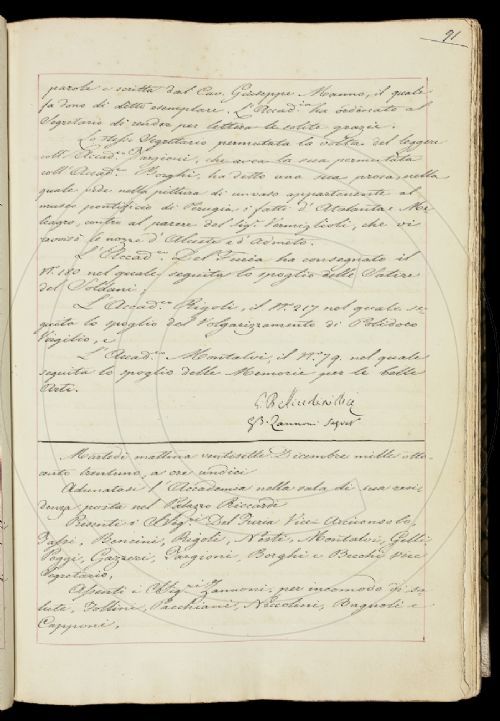 91
parole e scritta dal Cav. Giuseppe Manno, il quale
fa dono di detto esemplare. L'Accad.ia ha ordinato al
Segretario di render per lettera le solite grazie.
Lo stesso Segretario permutata la volta del leggere
coll'Accad.co Targioni, che avea la sua permutata
coll'Accad.co Borghi, ha detto una sua prosa, nella
quale vede nella pittura di un vaso appartenente al
museo pontificio di Perugia i fatti d'Atalanta e Me
leagro, contro al parere del Sig.r Vermiglioli, che vi
ravvisò le nozze d'Alceste e d'Admeto.
L'Accad.co Del Furia ha consegnato il
N.o 180 nel quale seguita lo spoglio delle Satire
del Soldani;
L'Accad.co Rigoli, il N.o 217 nel quale se-
guita lo spoglio del Volgarizzamento di Polidoro
Virgilio, e
L'Accad.co Montalvi, il N.o 79. nel quale
seguita lo spoglio delle Memorie per le belle
Arti.
G. B. Zannoni Segret.
Martedì mattina ventisette Dicembre mille otto-
cento trentuno, a ore undici
Adunatasi l'Accademia nella sala di sua resi
denza posta nel Palazzo Riccardi
Presenti i Sig.ri Del Furia Vice-Arciconsolo,
Sarpi, Bencini, Rigoli, Nesti, Montalvi, Gelli
Poggi, Gazzeri, Targioni, Borghi e Becchi Vice
Segretario,
Assenti i Sig.ri Zannoni, per incomodo di sa-
lute, Follini, Pacchiani, Niccolini, Bagnoli e
Capponi.